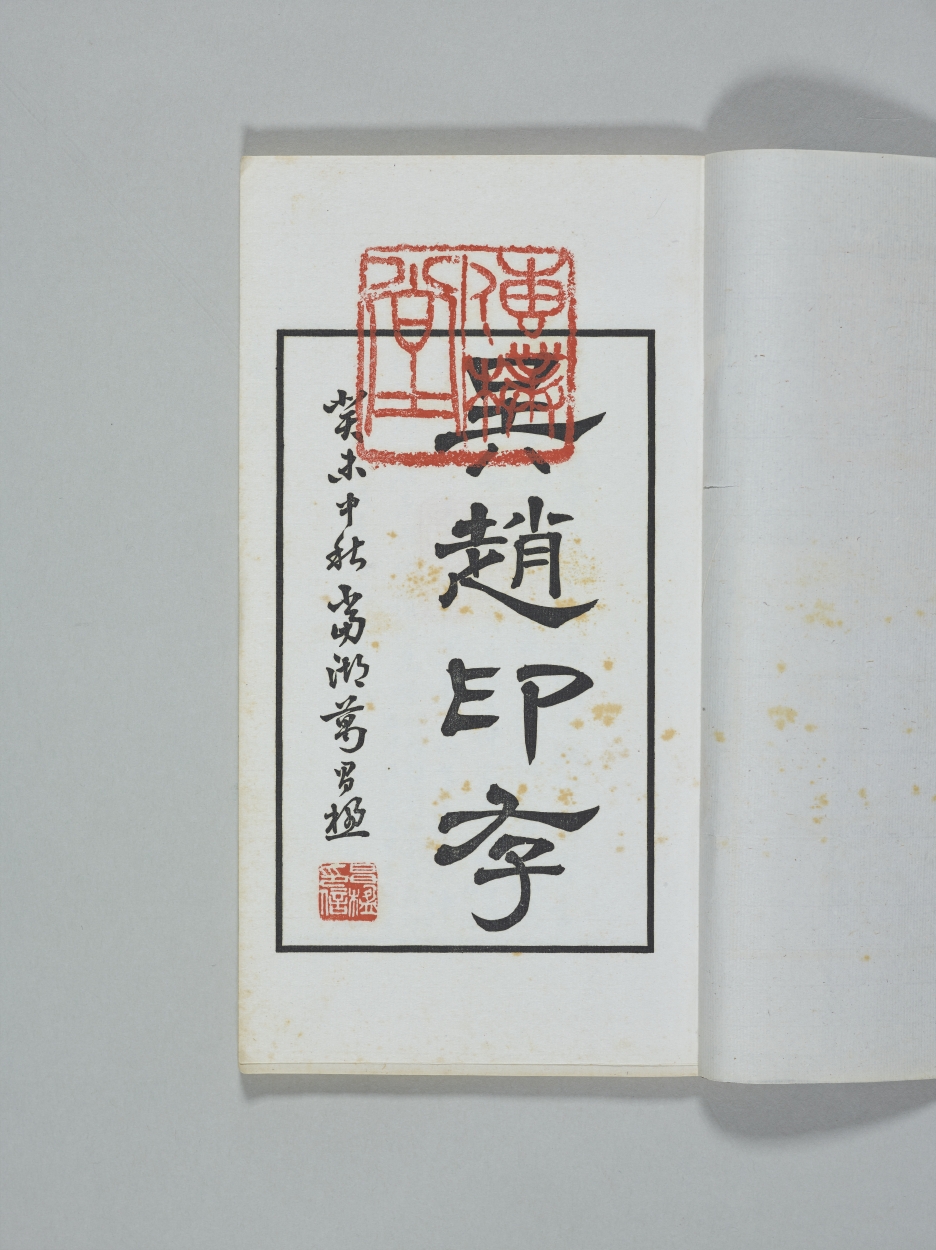 傳樸堂
吳趙印存
癸未中秋當湖葛昌楹
昌楹印信